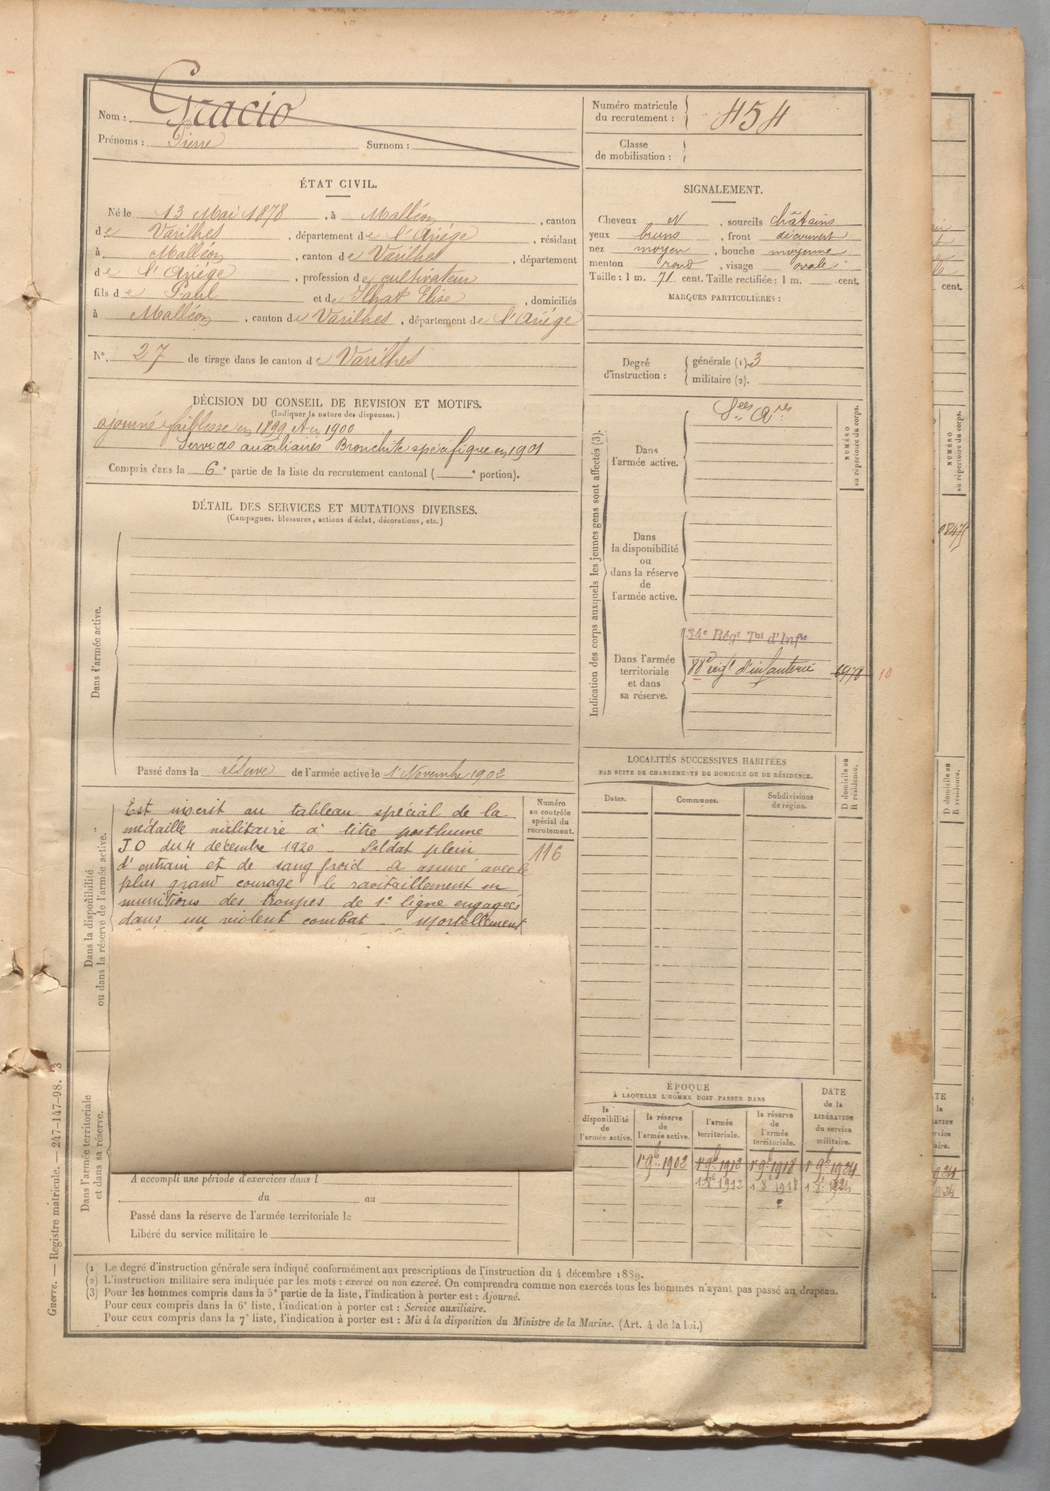 Nom : Gracio
Prénoms : Pierre Surnom :
Numéro matricule du recrutement : 454
Classe de mobilisation :
ÉTAT CIVIL.
Né le 13 Mai 1878, à Malléon, canton
de Varilhes, département de l'Ariége, résidant
à Malléon, canton de Varilhes, département
de l'Ariége, profession de cultivateur
fils de Paul et de Elise, domiciliés
à Malléon, canton de Varilhes, département de l'Ariége
N° 27 de tirage dans le canton de Varilhes
SIGNALEMENT.
Cheveux et, sourcils châtains
yeux bruns, front découvert
nez moyen, bouche moyenne
menton rond, visage ovale
Taille : 1 m. 71 cent. Taille rectifiée : 1 m. cent.
MARQUES PARTICULIÈRES :
Degré d'instruction :
générale (1) 3
militaire (2).
DÉCISION DU CONSEIL DE REVISION ET MOTIFS.
(Indiquer la nature des dispenses.)
ajourné faiblesse en 1899 et en 1900
Services auxiliaires Bronchite spécifique en 1901
Compris dans la 6e partie de la liste du recrutement cantonal ( e portion).
DÉTAIL DES SERVICES ET MUTATIONS DIVERSES.
(Campagnes, blessures, actions d'éclat, décorations, etc.)
Dans l'armée active.
Passé dans la réserve de l'armée active le 1 Novembre 1902
Indication des corps auxquels les jeunes gens sont affectés (3).
Dans l'armée active.
Sces Ares
NUMÉRO au répertoire du corps.
Dans la disponibilité ou dans la réserve de l'armée active.
Dans l'armée territoriale et dans sa réserve.
34e Régt Tal d'Infie
88e regt d'infanterie
10
LOCALITÉS SUCCESSIVES HABITÉES
PAR SUITE DE CHANGEMENTS DE DOMICILE OU DE RÉSIDENCE.
Dates.
Communes.
Subdivisions de région.
D domicile ou R résidence.
Dans la disponibilité ou dans la réserve de l'armée active.
Numéro au contrôle spécial du recrutement.
116
Est inscrit au tableau spécial de la
médaille militaire à titre posthume
JO du 4 décembre 1920 - Soldat plein
d'entrain et de sang froid a assuré avec le
plus grand courage le ravitaillement en
munitions des troupes de 1e ligne engagées
dans un violent combat - mortellement
Dans l'armée territoriale et dans sa réserve.
A accompli une période d'exercices dans l
du au
Passé dans la réserve de l'armée territoriale le
Libéré du service militaire le
ÉPOQUE
À LAQUELLE L'HOMME DOIT PASSER DANS
la disponibilité de l'armée active.
la réserve de l'armée active.
l'armée territoriale.
la réserve de l'armée territoriale.
DATE de la LIBÉRATION du service militaire.
1er 9bre 1902 1er 9bre 1912 1er 9bre 1918 1er 9bre 1924
(1 Le degré d'instruction générale sera indiqué conformément aux prescriptions de l'instruction du 4 décembre 1889.
(2) L'instruction militaire sera indiquée par les mots : exercé ou non exercé. On comprendra comme non exercés tous les hommes n'ayant pas passé au drapeau.
(3) Pour les hommes compris dans la 5e partie de la liste, l'indication à porter est : Ajourné.
Pour ceux compris dans la 6e liste, l'indication à porter est : Service auxiliaire.
Pour ceux compris dans la 7e liste, l'indication à porter est : Mis à la disposition du Ministre de la Marine. (Art. 4 de la loi.)
Guerre. — Registre matricule. — 247-147-98.